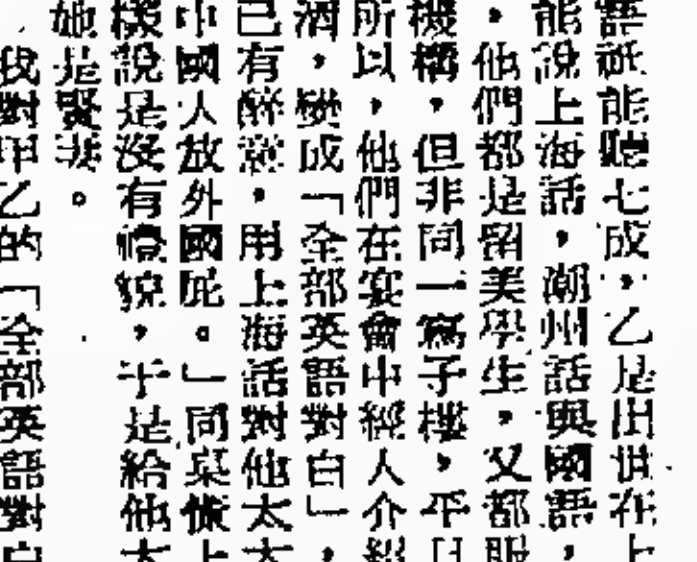 語祇能聽七成，乙是出世在上
能說上海話，潮州話與國語，
，他們都是留美學生，又都服
機構，但非同一寫字樓，平日
所以，他們在宴會中經人介紹
酒，變成「全部英語對白」，
已有醉意，用上海話對他太太
中國人放外國屁。」同桌
樣說是沒有禮貌，于是給他太
她是賢妻。
我對甲乙的「全部英語對白